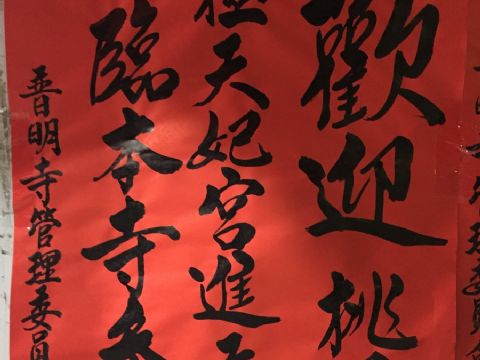 歡迎桃
天妃宮進
臨本寺參
普明寺管理委員